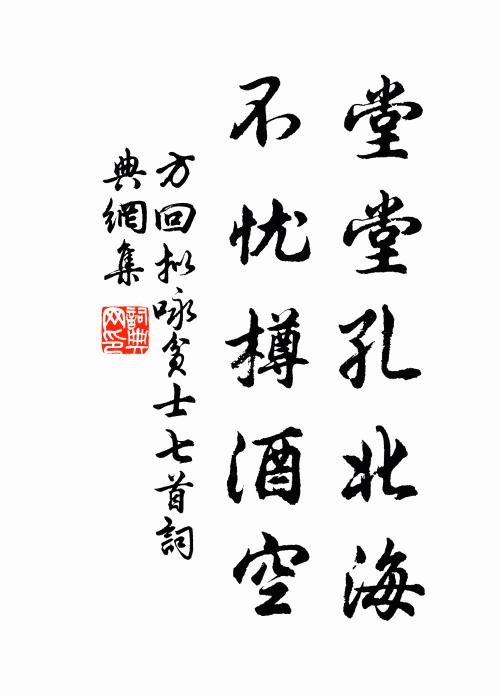 堂堂孔北海
不忧樽酒空
方回拟咏贫士七首詞
典網集
詞典
网印